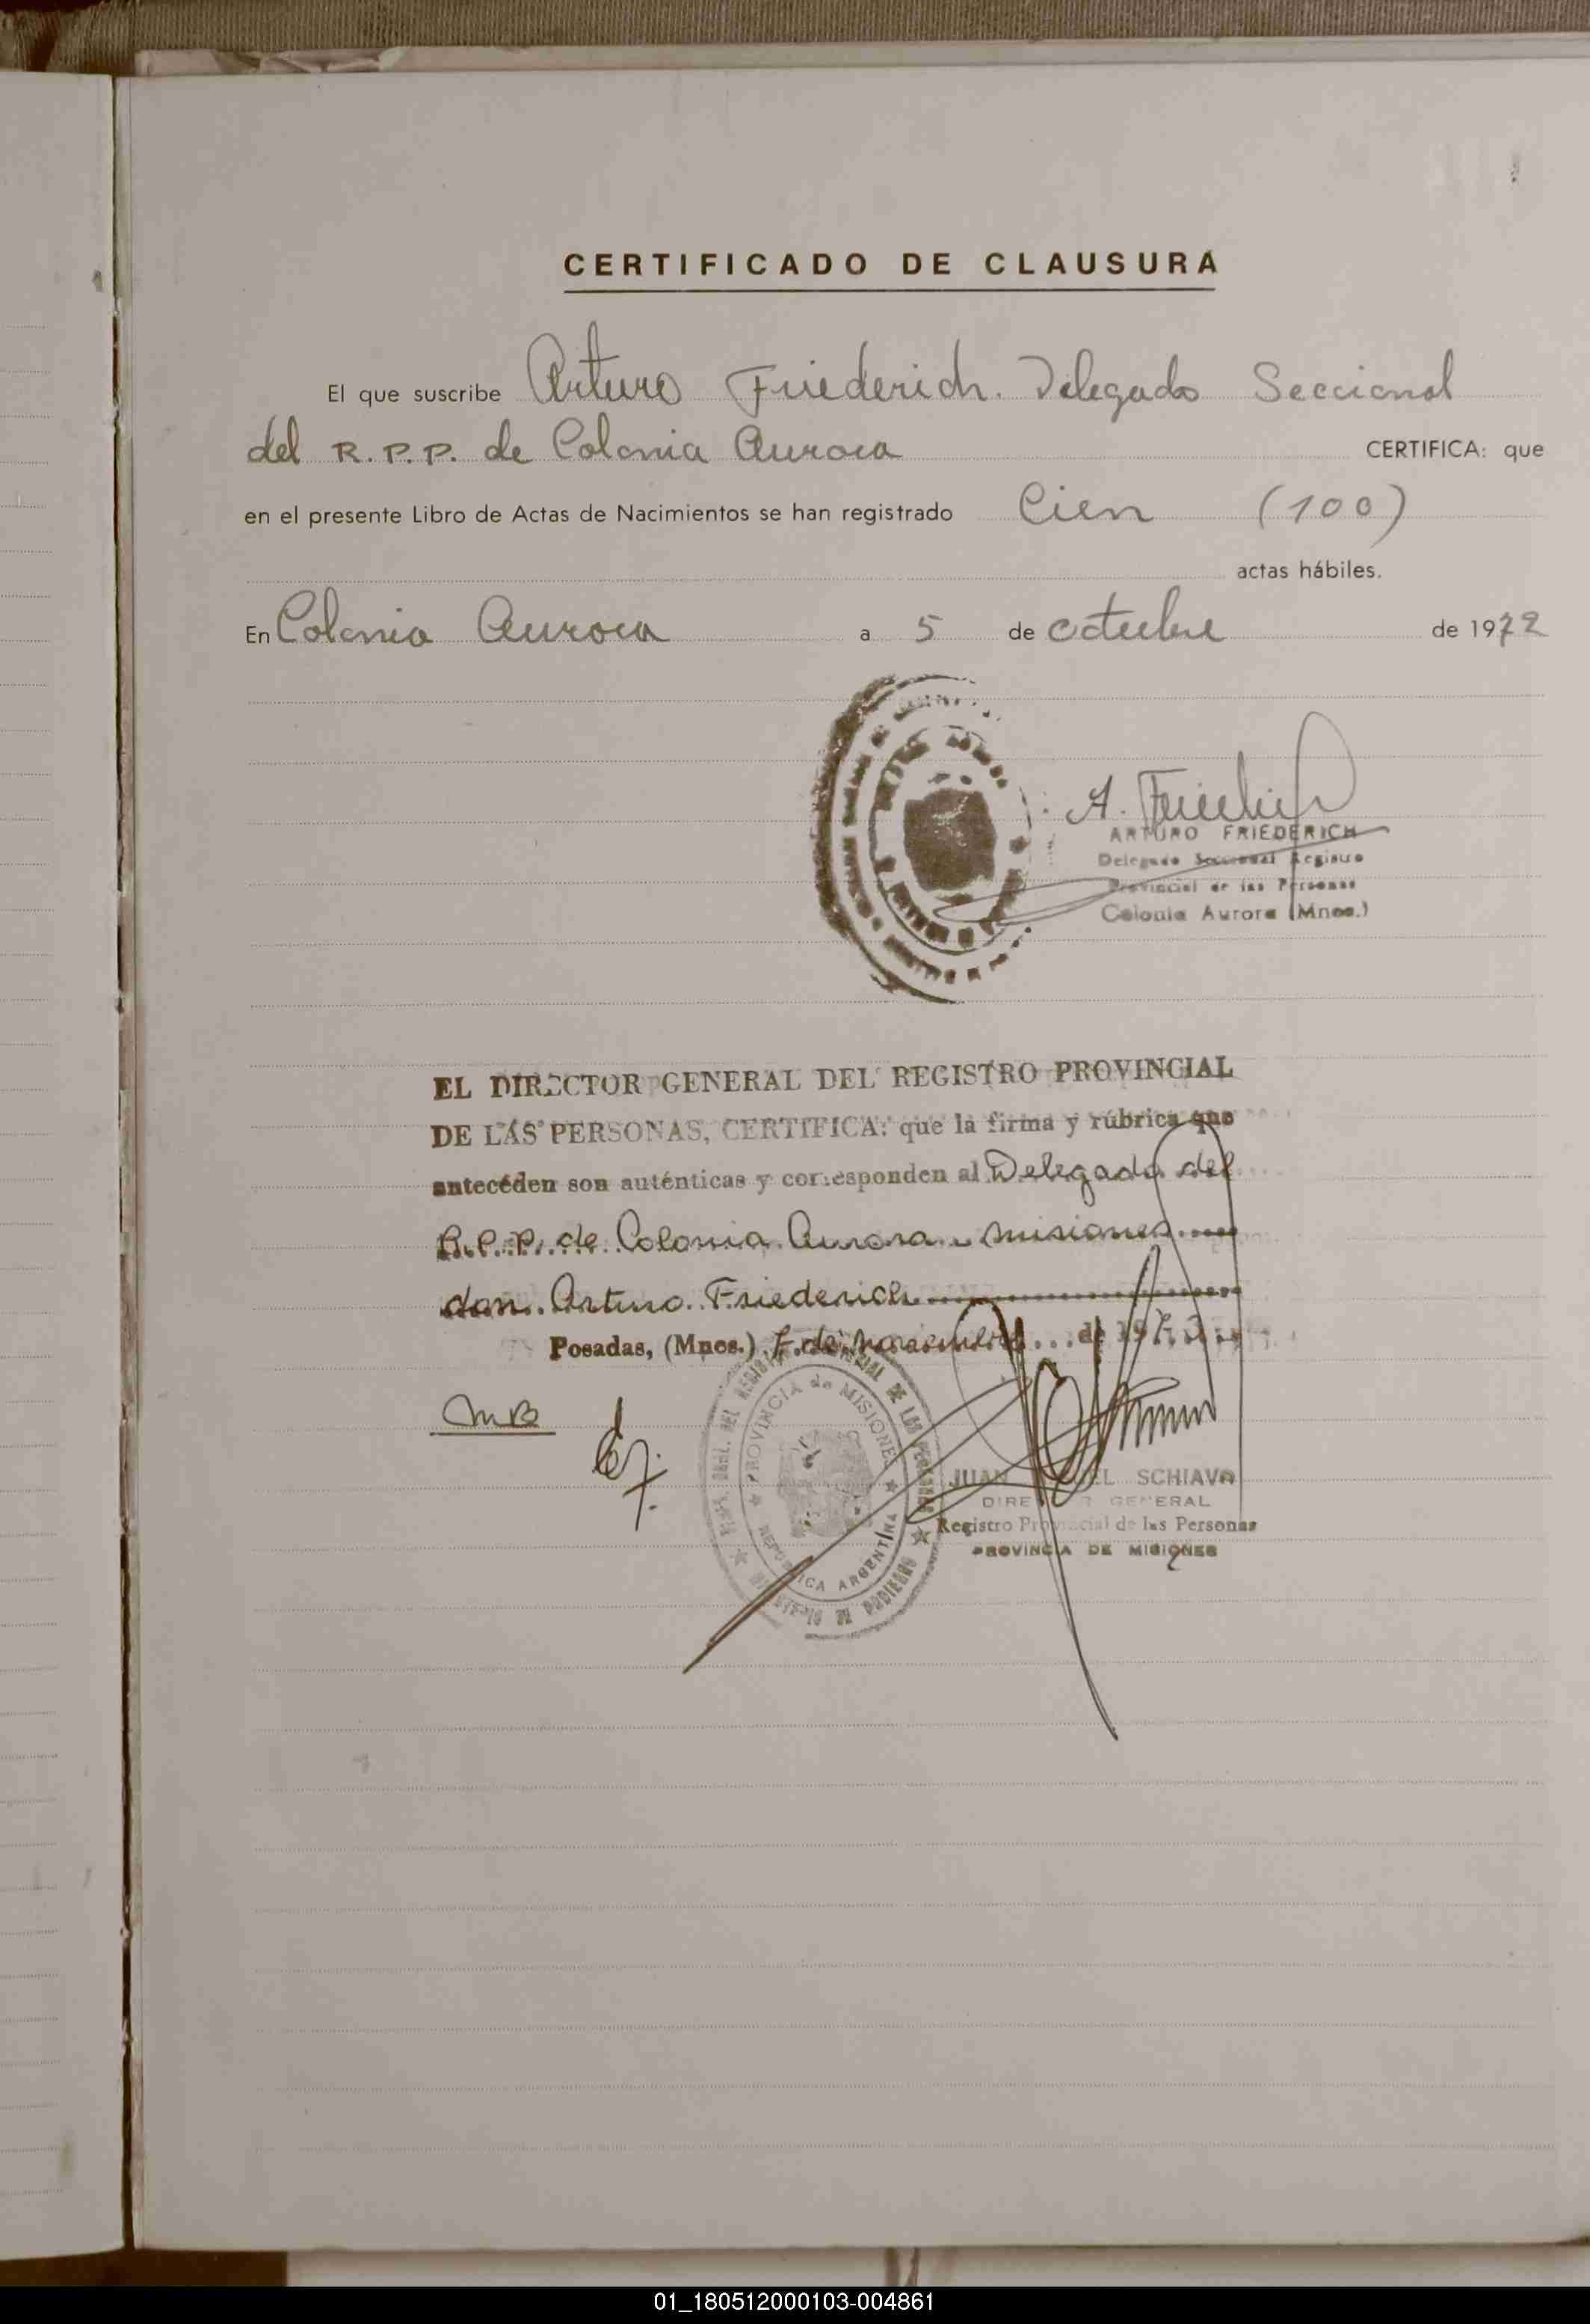 CERTIFICADO DE CLAUSURA
El que suscribe Arturo Friederich. Delegado Seccional
del R.P.P. de Colonia Aurora CERTIFICA: que
en el presente Libro de Actas de Nacimientos se han registrado Cien (100)
actas hábiles.
En Colonia Aurora a 5 de octubre de 1972
A. Friederich
ARTURO FRIEDERICH
Delegado Seccional Registro
Provincial de las Personas
Colonia Aurora (Mnes.)
EL DIRECTOR GENERAL DEL REGISTRO PROVINCIAL
DE LAS PERSONAS, CERTIFICA: que la firma y rúbrica que
anteceden son auténticas y corresponden al Delegado del
R.P.P. de Colonia Aurora - Misiones
don Arturo Friederich
Posadas, (Mnes.) de noviembre de 19
MB
PROVINCIA de MISIONES
REPUBLICA ARGENTINA
JUAN SCHIAVO
DIRECTOR GENERAL
Registro Provincial de las Personas
PROVINCIA DE MISIONES
01_180512000103-004861